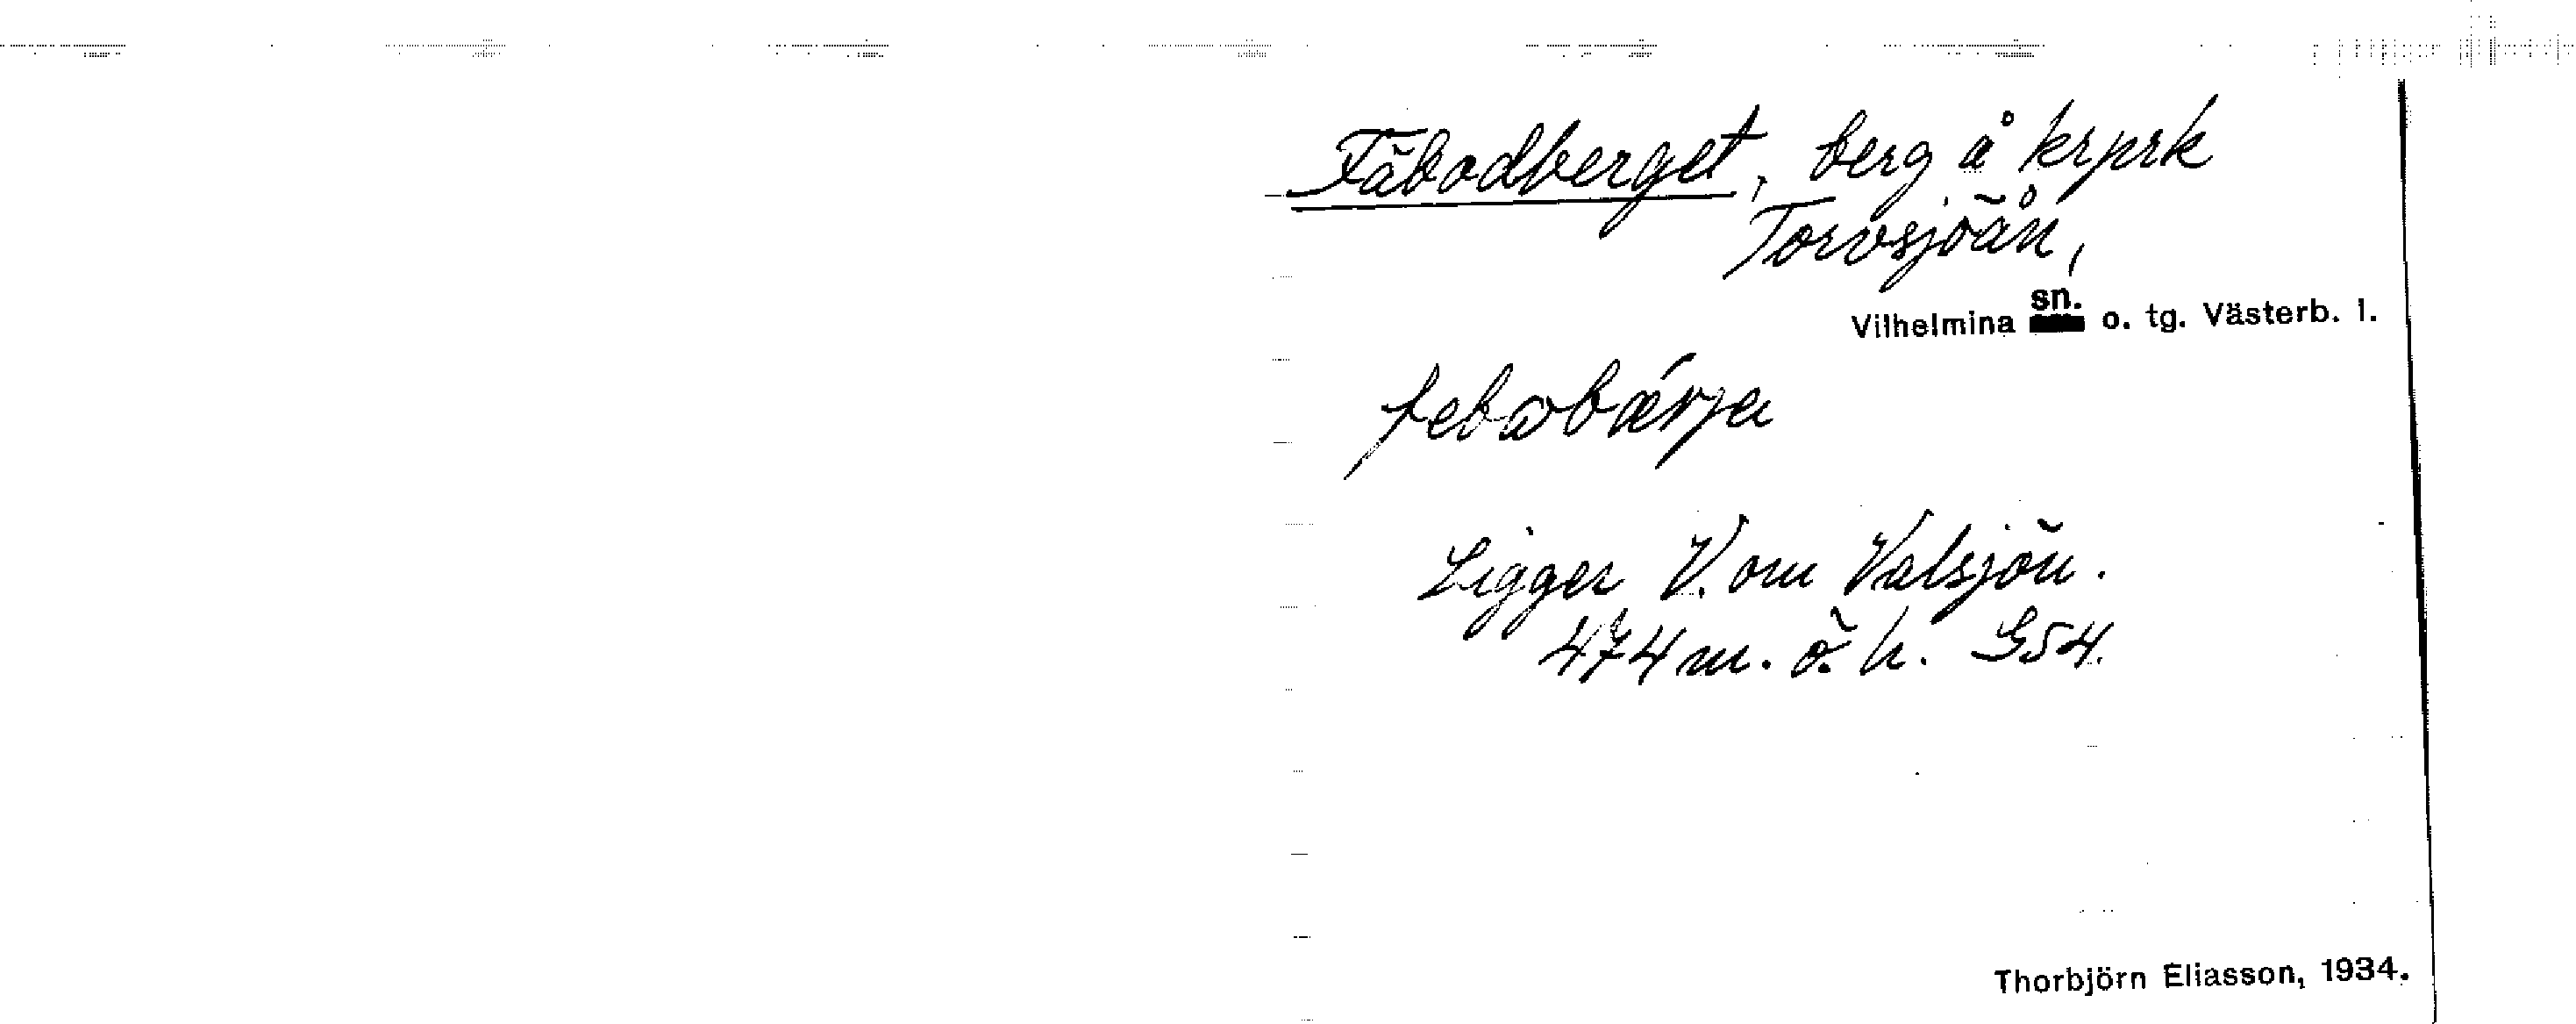 Fäbodberget, berg å krprk
Torvsjöån,
Vilhelmina sn. o. tg. Västerb. l.
febωbǽrja
Ligger V. om Valsjön.
474 m. ö. h. G54.
Thorbjörn Eliasson, 1934.